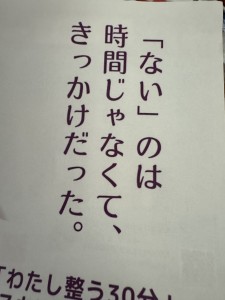 「ない」のは
時間じゃなくて、
きっかけだった。
「わたし整う30分